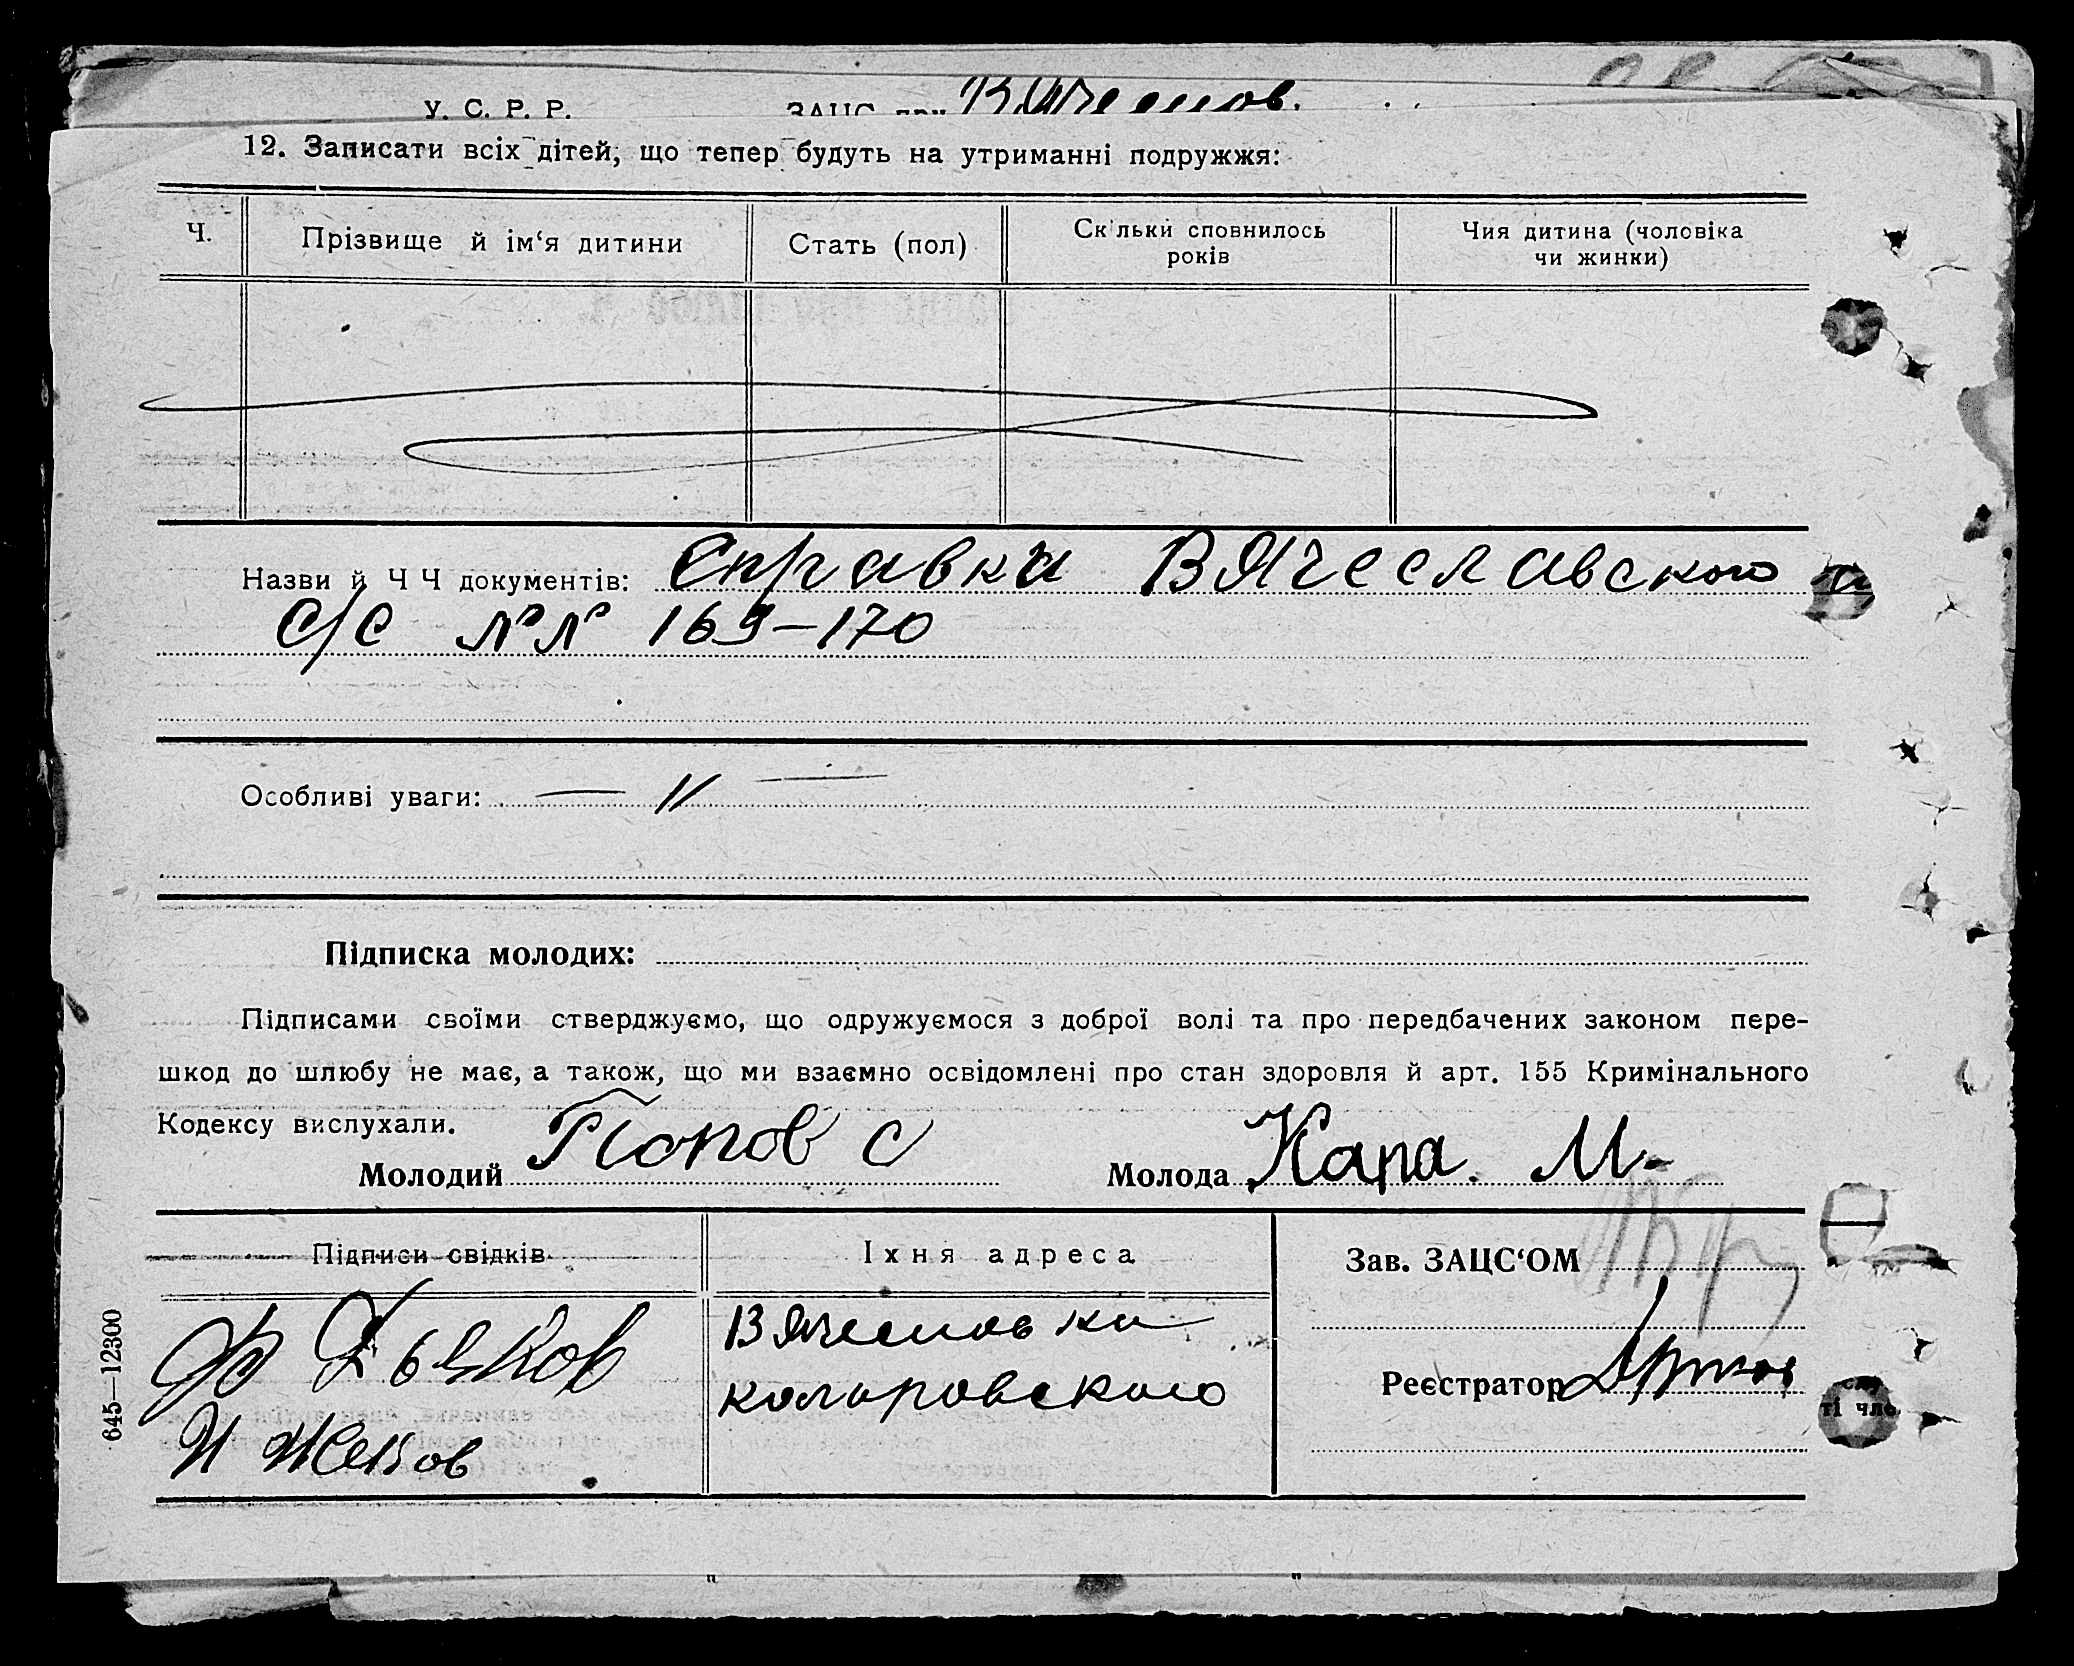 У. С. Р. Р. ЗАЦС при Вячеслов.
12. Записати всіх дітей, що тепер будуть на утриманні подружжя:
Ч. Прізвище й ім‘я дитини Стать (пол) Скільки сповнилось років Чия дитина (чоловіка чи жинки)
Назви й Ч Ч документів: Справка Вячееславского
с/с №№ 169–170
Особливі уваги: — 〃 —
Підписка молодих:
Підписами своїми стверджуємо, що одружуємося з доброї волі та про передбачених законом пере-
шкод до шлюбу не має, а також, що ми взаємно освідомлені про стан здоровля й арт. 155 Кримінального
Кодексу вислухали.
Молодий Попов С Молода Кара. М.
Підписи свідків Їхня адреса Зав. ЗАЦС‘ОМ
Ф Дьяков Вячесловка
коларовского Реєстратор
И Жеков
645—12300